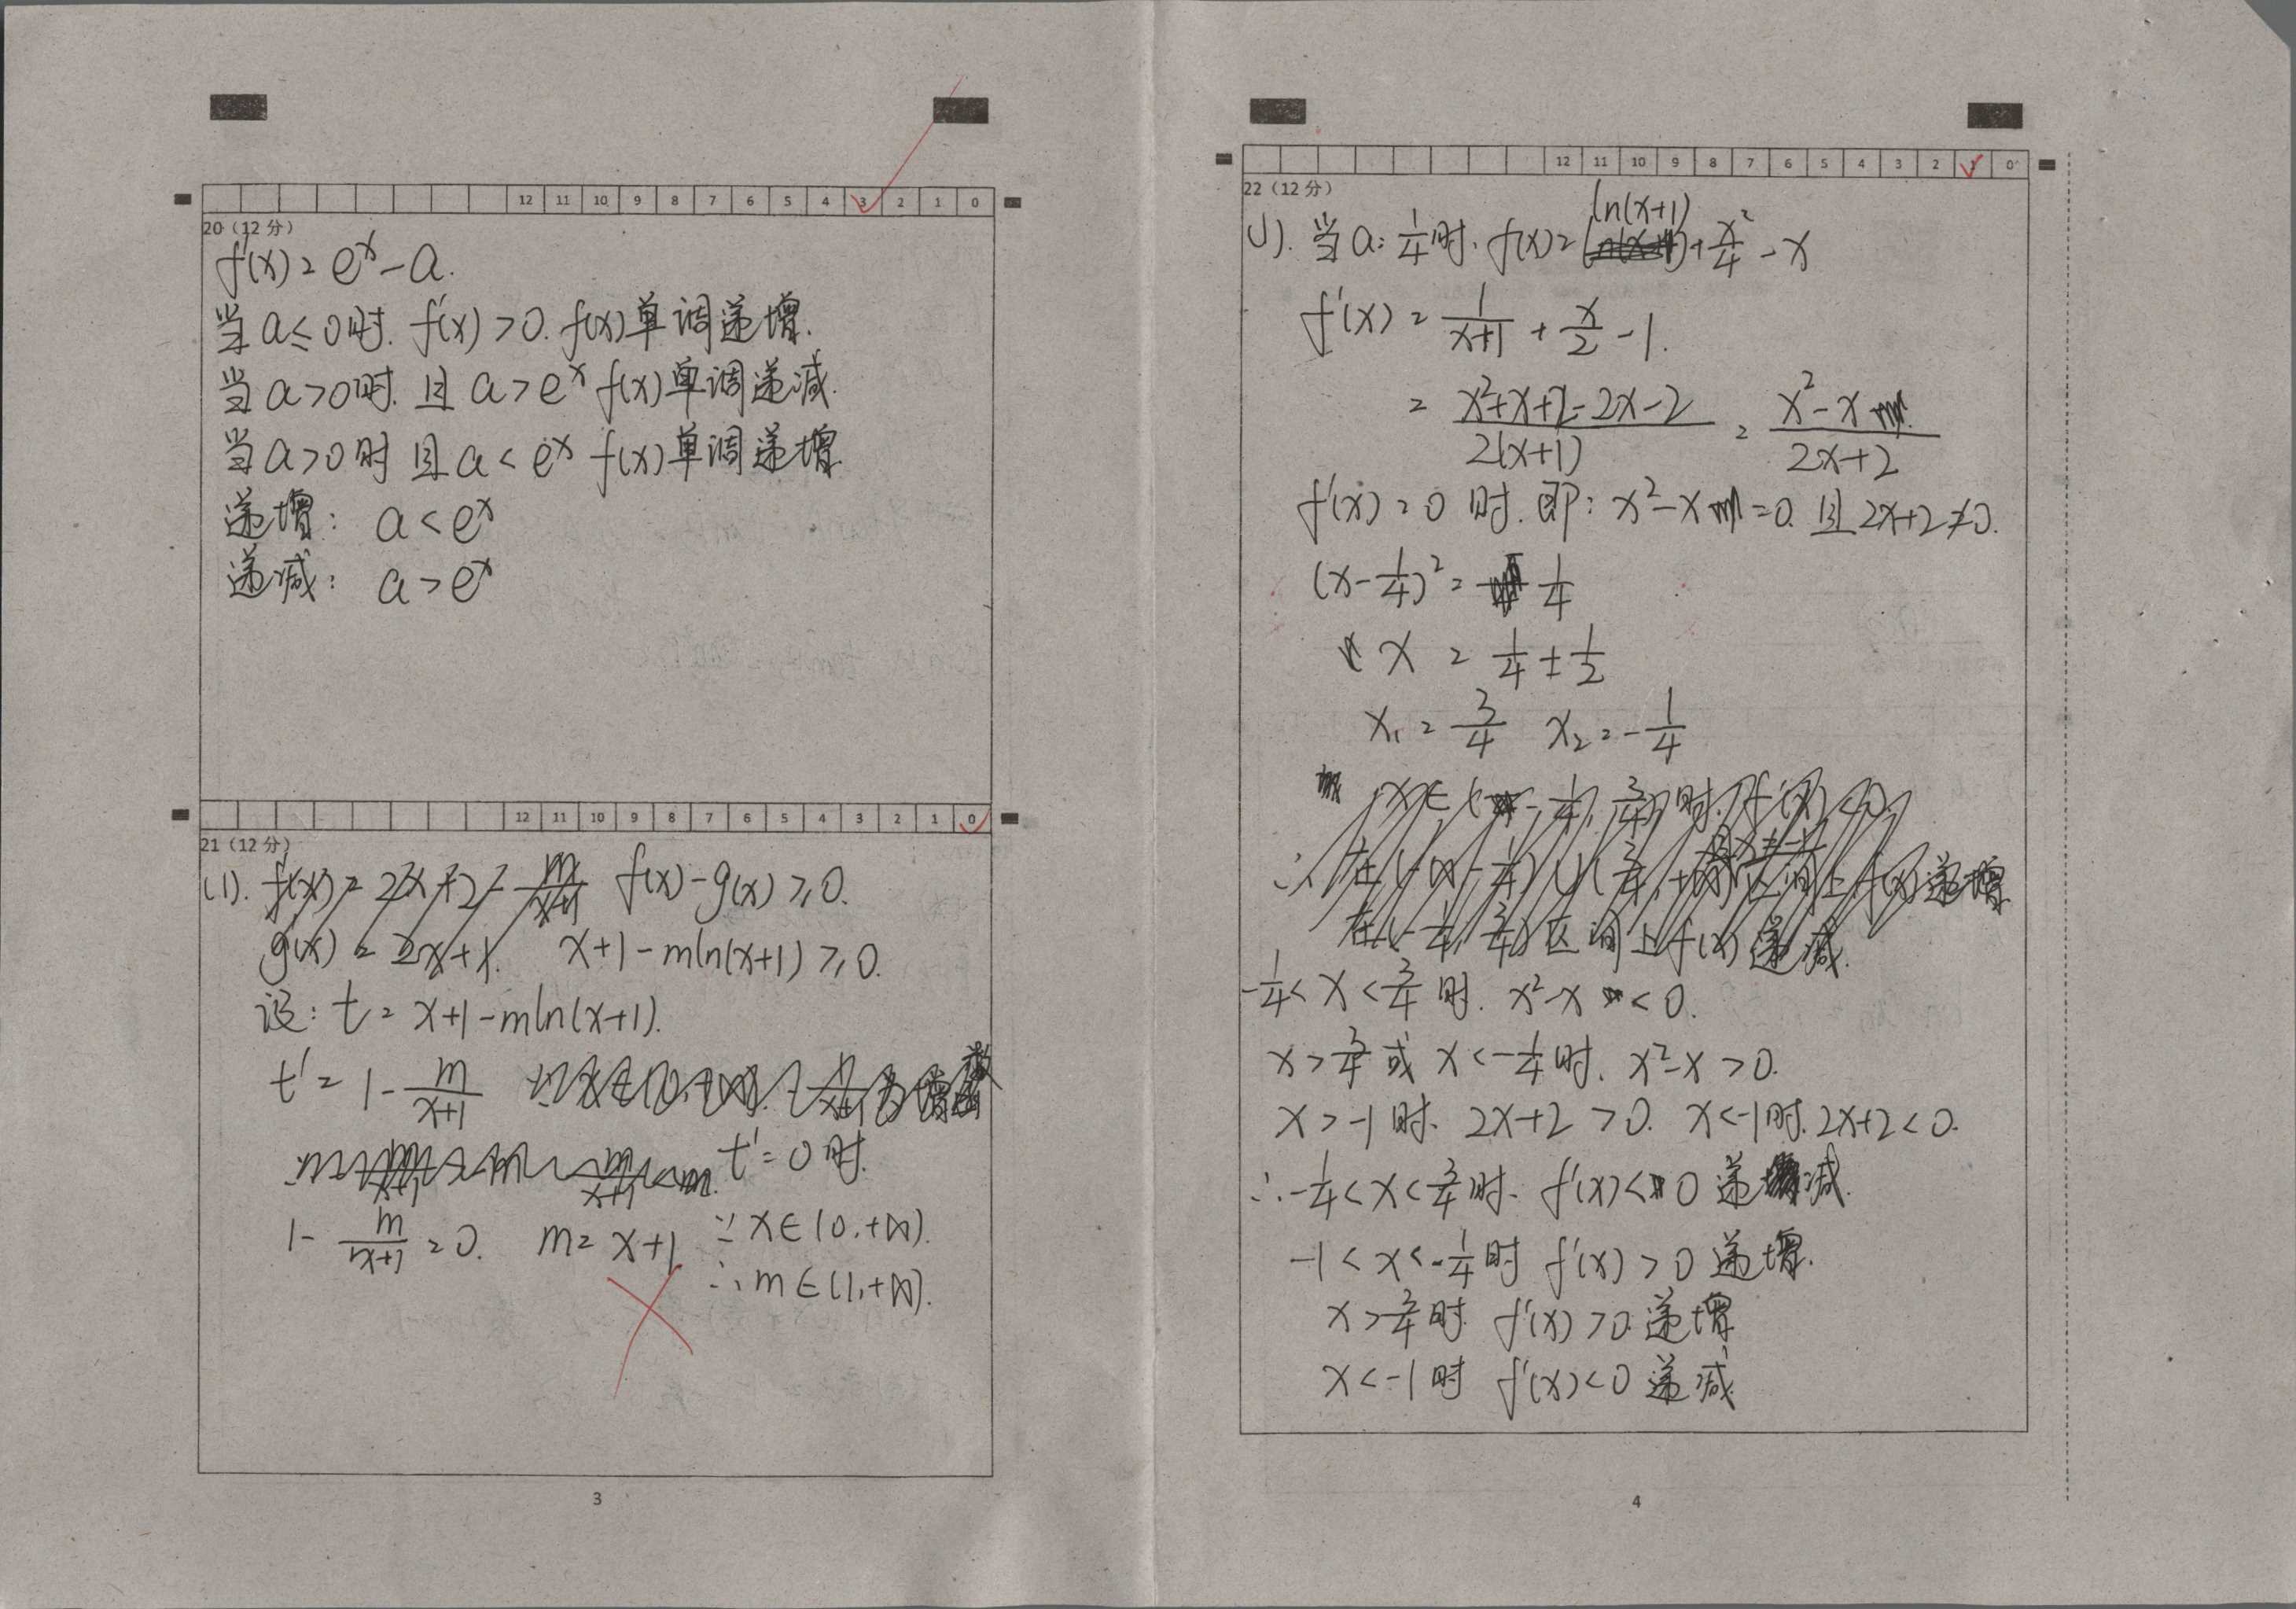 12 11 10 9 8 7 6 5 4 3 2 1 0
20（12 分）
f'(x)=e^x-a.
当a≤0时. f'(x)>0. f(x)单调递增.
当a>0时. 且a>e^x f(x)单调递减.
当a>0时 且a<e^x f(x)单调递增.
递增: a<e^x
递减: a>e^x
12 11 10 9 8 7 6 5 4 3 2 1 0
21（12 分）
(1). f(x)-g(x)≥0.
x+1-mln(x+1)≥0.
设: t=x+1-mln(x+1).
t'=1-m/(x+1)
t'=0时.
1-m/(x+1)=0. m=x+1 ∵x∈(0,+∞).
∴m∈(1,+∞).
3
12 11 10 9 8 7 6 5 4 3 2 1 0
22（12 分）
(1). 当a=1/4时. f(x)=ln(x+1)+x²/4-x
f'(x)=1/(x+1)+x/2-1.
=(x²+x+2-2x-2)/(2(x+1))=(x²-x)/(2x+2)
f'(x)=0时. 即: x²-x=0. 且2x+2≠0.
(x-1/4)²=1/4
x=1/4±1/2
x₁=3/4 x₂=-1/4
-1/4<x<3/4时. x²-x<0.
x>3/4或x<-1/4时. x²-x>0.
x>-1时. 2x+2>0. x<-1时. 2x+2<0.
∴-1/4<x<3/4时. f'(x)<0 递减.
-1<x<-1/4时 f'(x)>0 递增.
x>3/4时 f'(x)>0 递增
x<-1时 f'(x)<0 递减
4